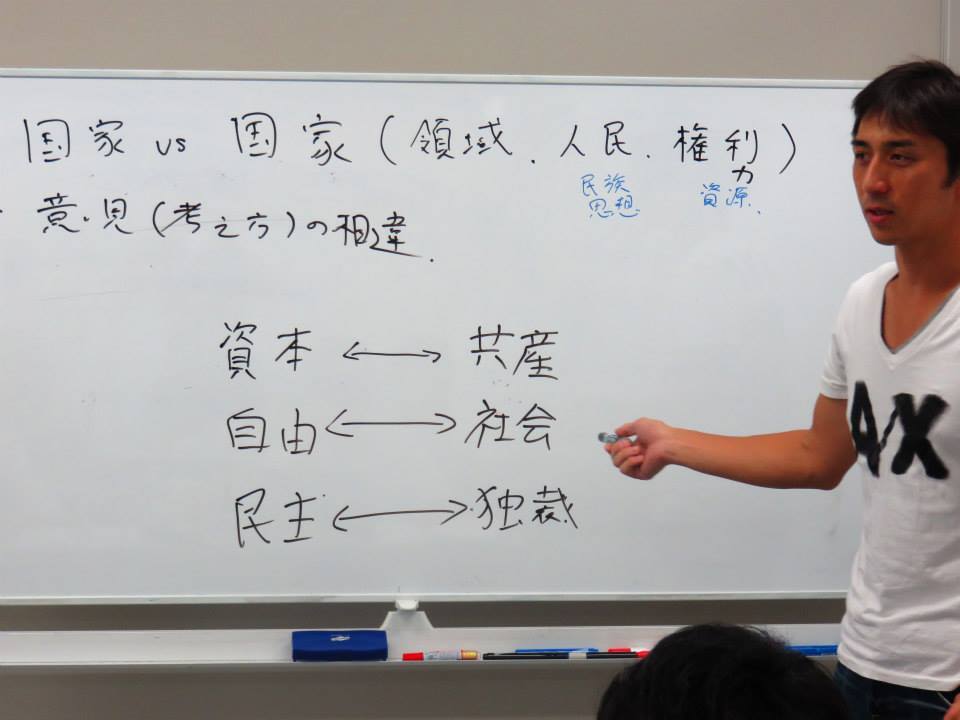 国家 vs 国家 (領域、人民、権利)
力
民族 資源、
思想
・意見(考え方)の相違.
資本 ↔ 共産
自由 ↔ 社会
民主 ↔ 独裁
A/X